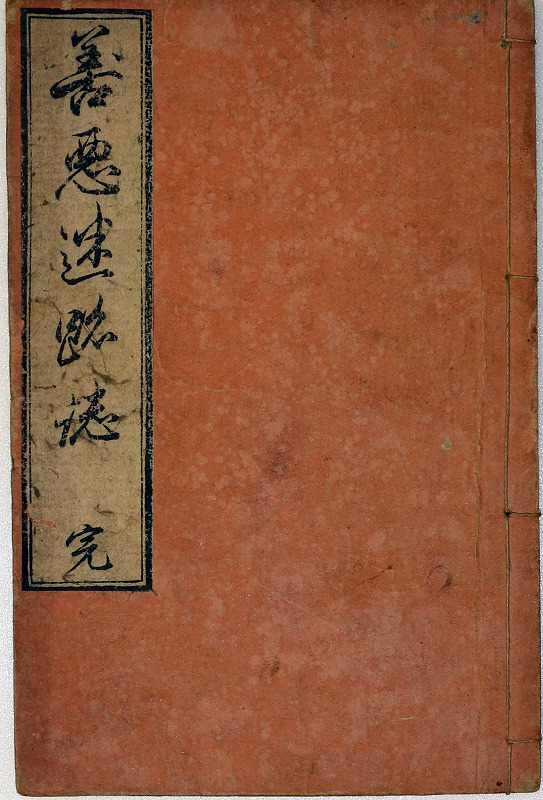 善悪迷路誌 完